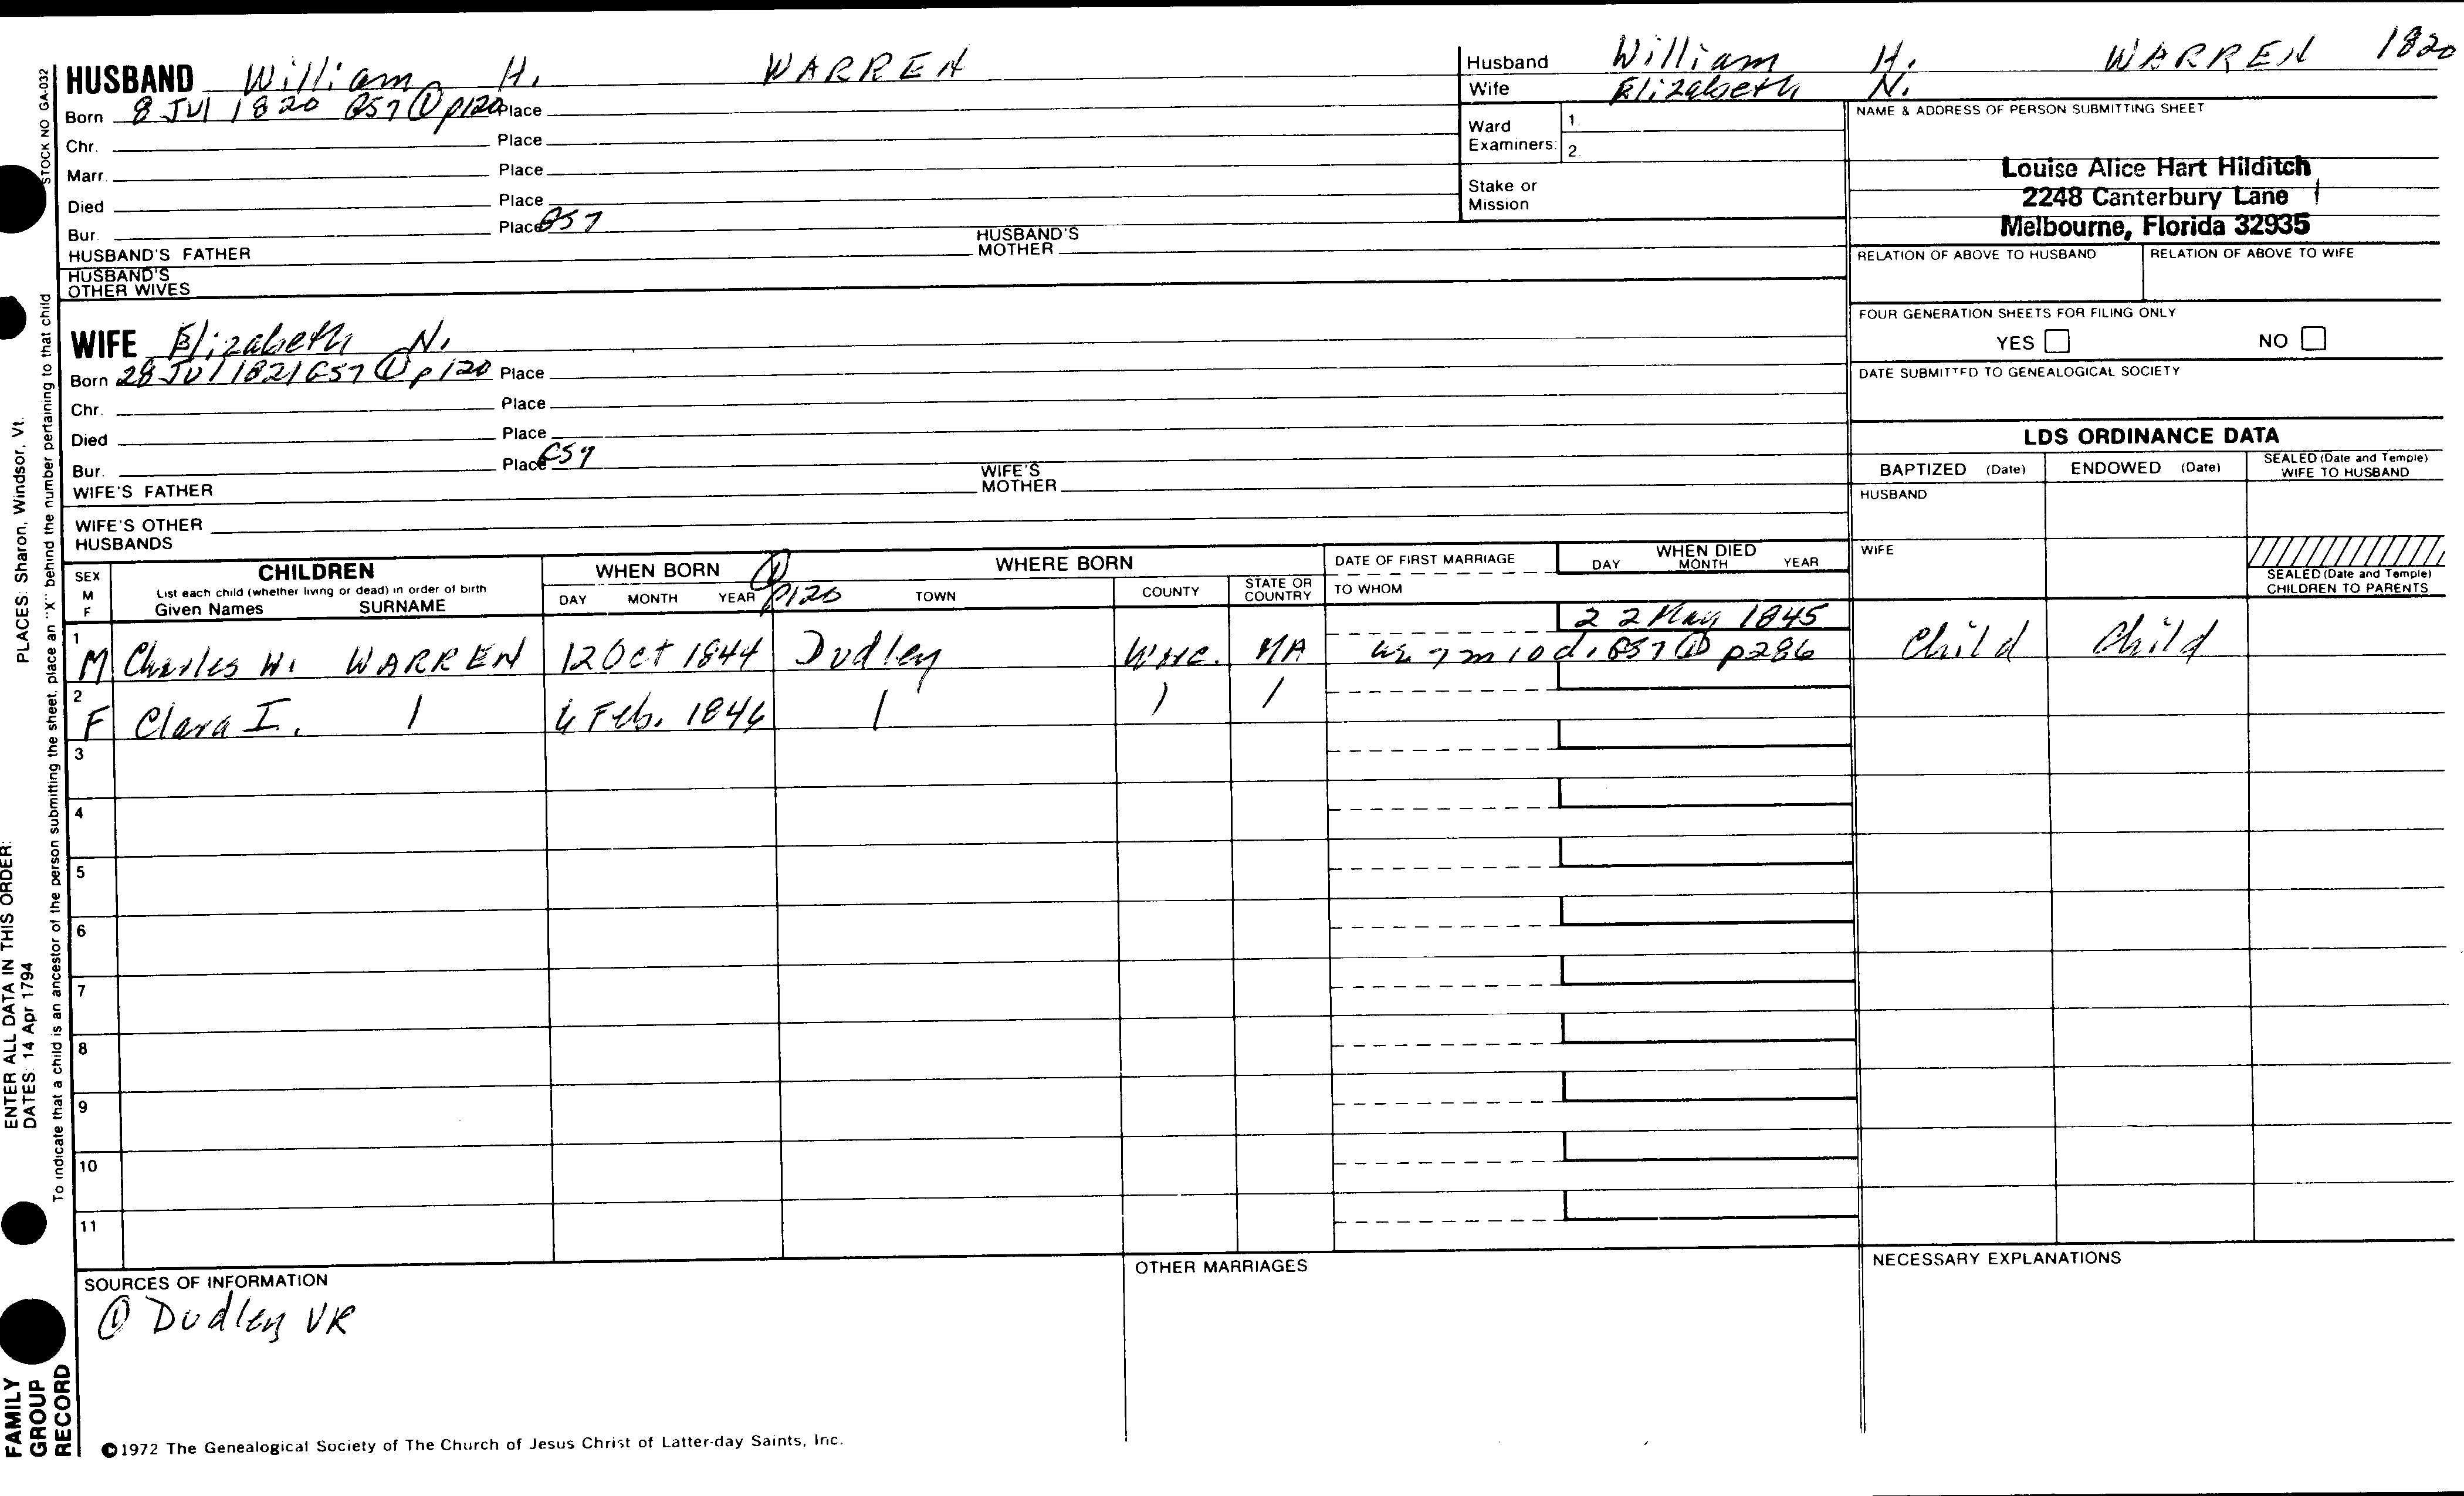 HUSBAND William H. WARREN
Born 8 JUl 1820 GS7 ① p120 Place
Chr. Place
Marr. Place
Died Place
Bur. Place GS7
HUSBAND'S FATHER HUSBAND'S MOTHER
HUSBAND'S OTHER WIVES
WIFE Elizabeth N.
Born 28 JUl 1821 GS7 ① p120 Place
Chr. Place
Died Place
Bur. Place GS7
WIFE'S FATHER WIFE'S MOTHER
WIFE'S OTHER HUSBANDS
Husband William H. WARREN 1820
Wife Elizabeth N.
Ward Examiners: 1. 2.
Stake or Mission
NAME & ADDRESS OF PERSON SUBMITTING SHEET
Louise Alice Hart Hilditch
2248 Canterbury Lane
Melbourne, Florida 32935
RELATION OF ABOVE TO HUSBAND RELATION OF ABOVE TO WIFE
FOUR GENERATION SHEETS FOR FILING ONLY
YES NO
DATE SUBMITTED TO GENEALOGICAL SOCIETY
LDS ORDINANCE DATA
BAPTIZED (Date) ENDOWED (Date) SEALED (Date and Temple) WIFE TO HUSBAND
HUSBAND
WIFE
SEALED (Date and Temple) CHILDREN TO PARENTS
SEX M F
CHILDREN
List each child (whether living or dead) in order of birth
Given Names SURNAME
WHEN BORN ① p120
DAY MONTH YEAR
WHERE BORN
TOWN COUNTY STATE OR COUNTRY
DATE OF FIRST MARRIAGE
TO WHOM
WHEN DIED
DAY MONTH YEAR
22 May 1845
1 M Charles W. WARREN 12 Oct 1844 Dudley Wrc. MA 7m 10d. GS7 ① p286 Child Child
2 F Clara I. 6 Feb. 1846
3
4
5
6
7
8
9
10
11
SOURCES OF INFORMATION
① Dudley VR
OTHER MARRIAGES
NECESSARY EXPLANATIONS
©1972 The Genealogical Society of The Church of Jesus Christ of Latter-day Saints, Inc.
STOCK NO GA-032
To indicate that a child is an ancestor of the person submitting the sheet, place an "X" behind the number pertaining to that child
ENTER ALL DATA IN THIS ORDER: PLACES: Sharon, Windsor, Vt.
DATES: 14 Apr 1794
FAMILY
GROUP
RECORD